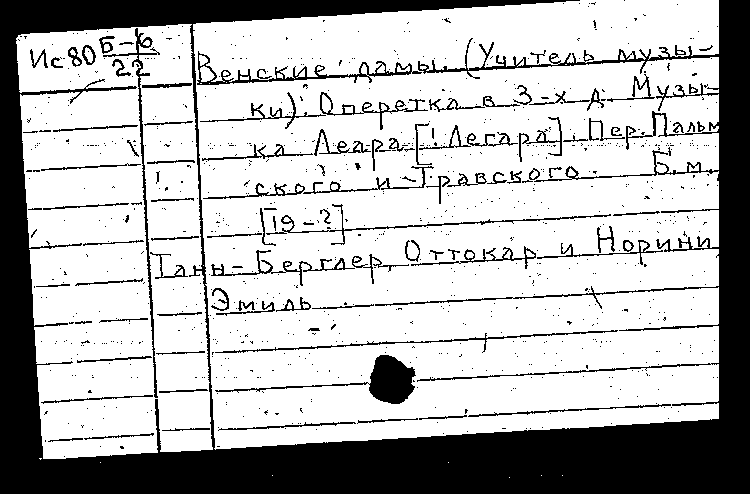 Ис80 Б-6/22
Венские дамы. (Учитель музы-
ки). Оперетка в 3-х д. Музы-
ка Леара [! Легара]. Пер. Пальм
ского и Травского. Б.м.
[19-?]
Танн-Берглер, Оттокар и Норини
Эмиль.